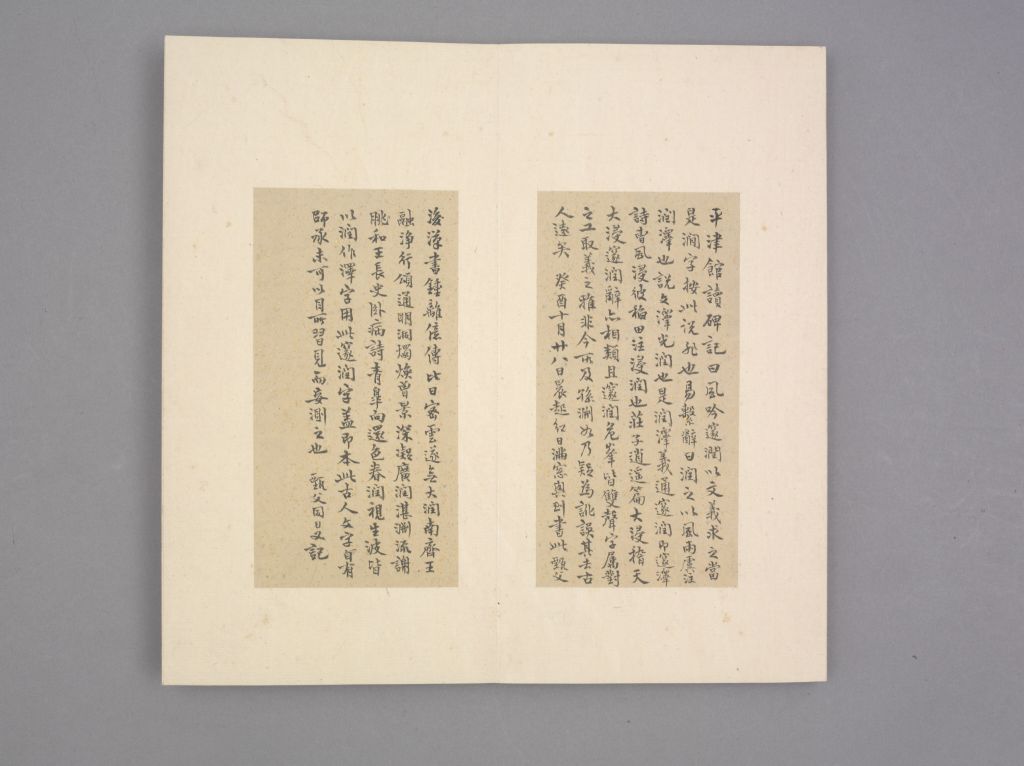 平津館讀碑記曰風吟邃潤以文義求之當
是澗字按此说非也易繫辭曰润之以風雨虞注
润澤也說文澤光润也是润澤義通邃润即邃澤
詩曹風浸彼稻田注浸润也莊子逍遥篇大浸稽天
大浸邃润辭亦相類且邃润危峯皆雙聲字屬對
之工取義之雅非今所及孫淵如乃疑為訛誤其去古
人遠矣 癸酉十月廿八日晨起紅日滿窓輿到書此 甄父
後漢書鍾離意傳比日密雲遂無大润南齊王
融淨行頌通明洞燭煥曽景深凝廣润湛淵流謝
朓和王長史卧病詩青皐向還色春润視生波皆
以润作澤字用此邃润字盖即本此古人文字自有
師承未可以目所習見而妄測之也 甄父同日又記